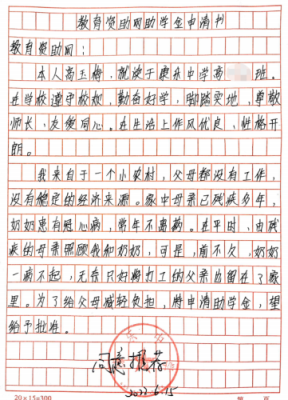 教育资助网助学金申请书
教育资助网：
本人高玉梅，就读于康乐中学高 班。
在学校遵守校规，勤奋好学，脚踏实地，尊敬
师长，友爱同心。在生活上作风优良，性格开
朗。
我来自于一个小农村，父母都没有工作，
没有稳定的经济来源。家中母亲已残疾多年，
奶奶患有冠心病，常年不离药。在平时，由残
疾的母亲照顾我和奶奶，可是，前不久，奶奶
一病不起，无奈只好打工的父亲也留在了家
里。为了给父母减轻负担，特申请助学金，望
给予批准。
同意推荐
2022.6.15
20×15=300